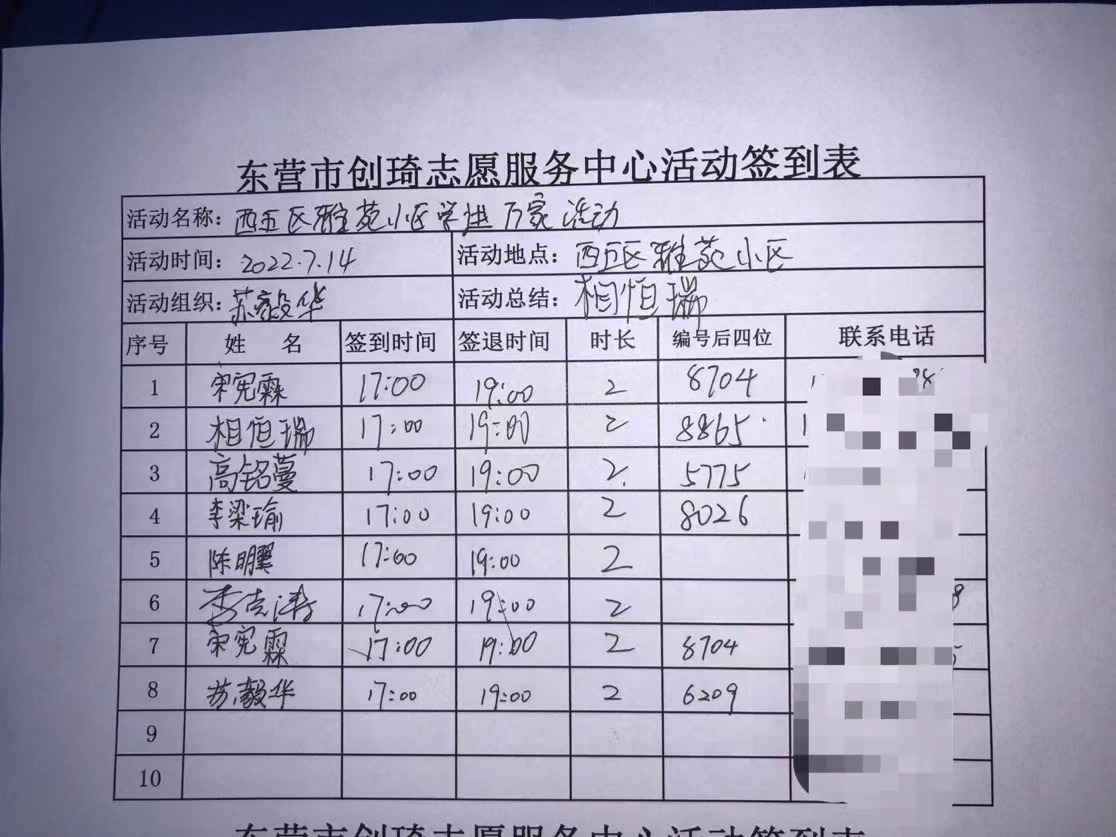 东营市创琦志愿服务中心活动签到表
活动名称：西五区雅苑小区学进万家活动
活动时间：2022.7.14 活动地点：西五区雅苑小区
活动组织：苏毅华 活动总结：相恒瑞
序号 姓 名 签到时间 签退时间 时长 编号后四位 联系电话
1 宋宪霖 17:00 19:00 2 8704
2 相恒瑞 17:00 19:00 2 8865
3 高铭蔓 17:00 19:00 2 5775
4 李梁瑜 17:00 19:00 2 8026
5 陈明翼 17:00 19:00 2
6 李克涛 17:00 19:00 2
7 宋宪霖 17:00 19:00 2 8704
8 苏毅华 17:00 19:00 2 6209
9
10
东营市创琦志愿服务中心活动签到表